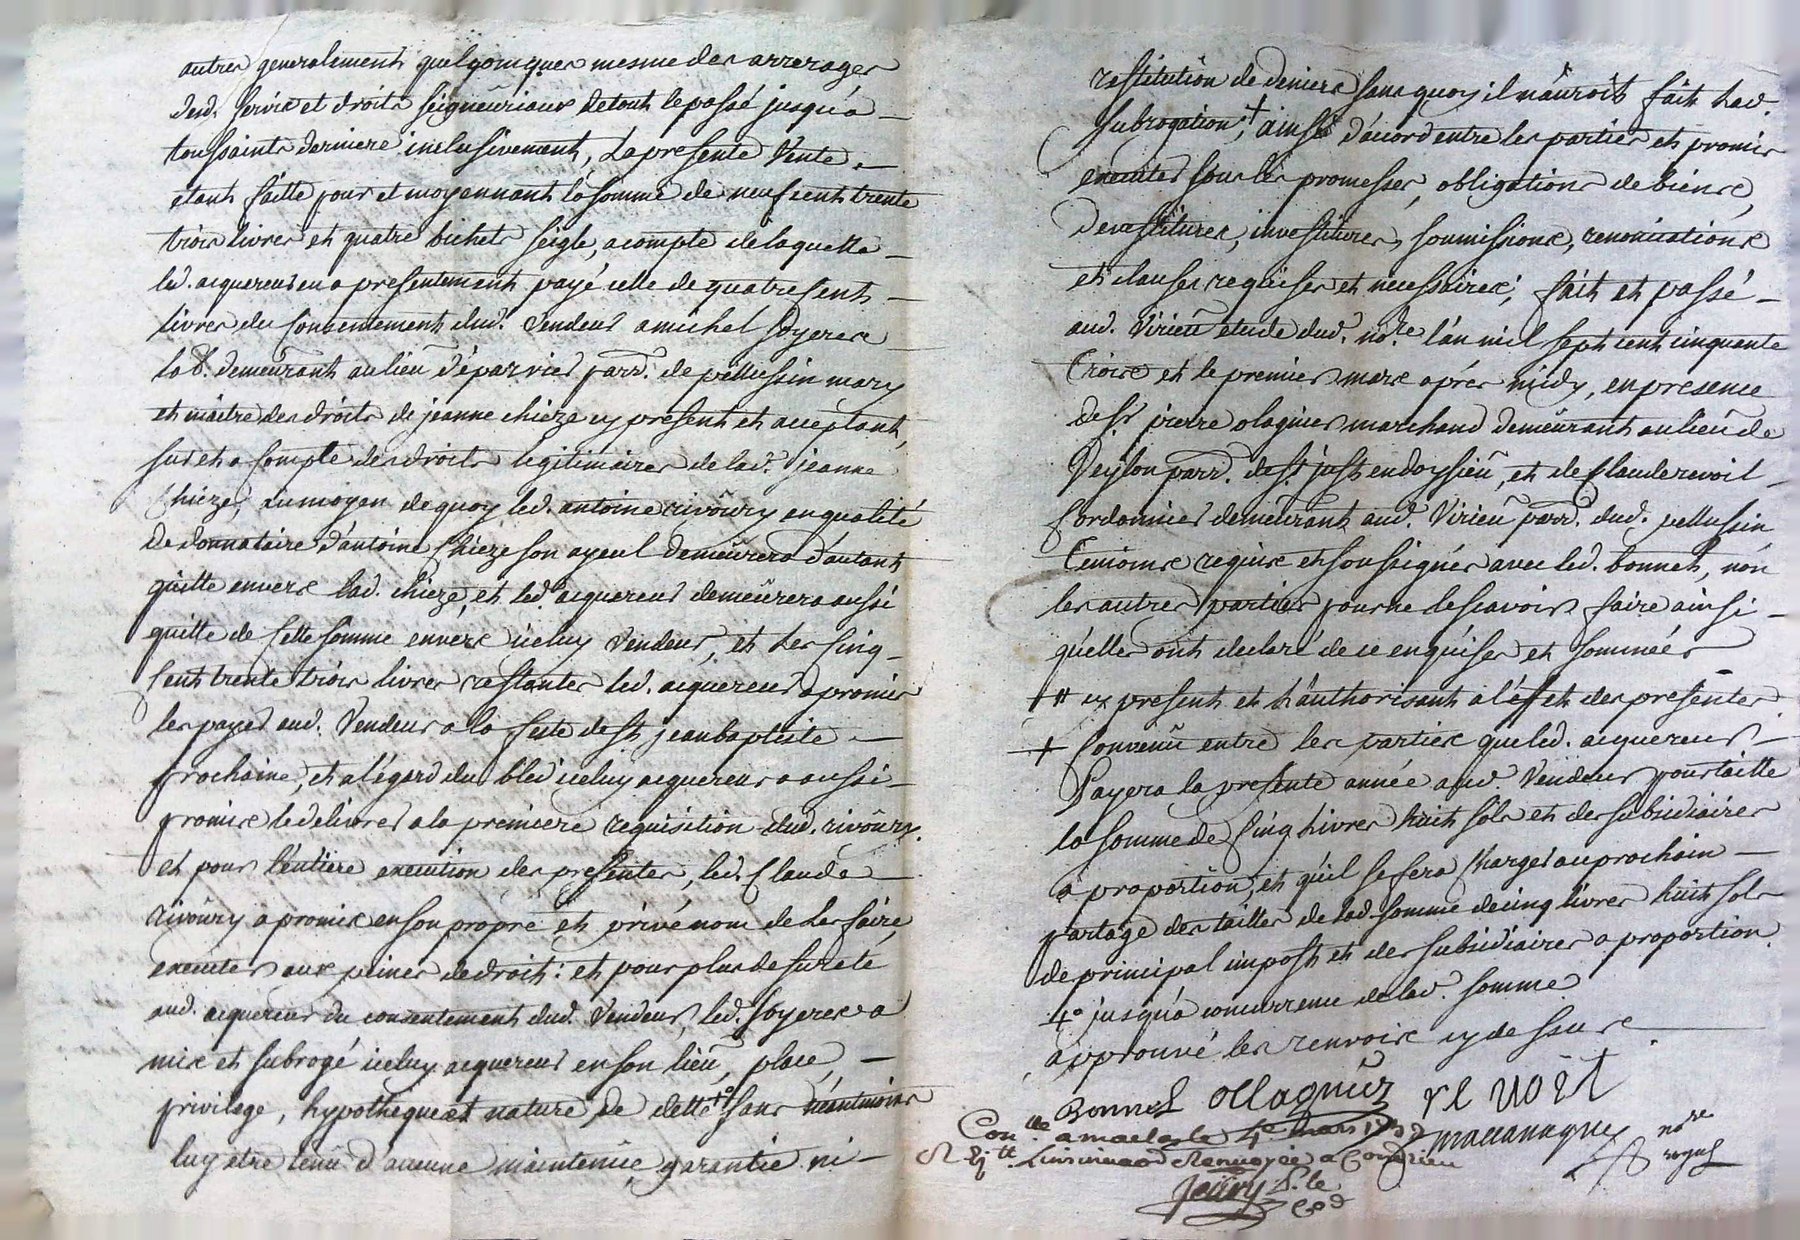 autres generalement quelqonques mesme des arrerages
desd. servis et droits seigneuriaux de tout le passé jusqu'a
toussaints derniere inclusivement, La presente Vente
etant faitte pour et moyennant la somme de neuf cent trente
trois livres et quatre bichets seigle, acompte de laquelle
led. acquereur en a presentement payé celle de quatre cent
livres du Consentement dud. Vendeur a michel Soyere
demeurant au lieu d'éparvier parr. de pellussin mary
et maitre des droits de jeanne chieze cy present et acceptant,
sur et a Compte des droits legitimaires de lad. jeanne
Chieze, au moyen de quoy led. antoine rivoury en qualité
de donnataire d'antoine Chieze son ayeul demeurera d'autant
quitte envers lad. chieze, et led. acquereur demeurera aussi
quitte de Cette somme envers iceluy Vendeur, et Les Cinq
Cent trente trois livres restantes led. acquereur a promis
les payer aud. Vendeur a la feste de st. jean baptiste
prochaine, et a l'égard du bled iceluy acquereur a aussi
promis le delivrer a la premiere requisition dud. rivoury
et pour l'entiere execution des presentes, led. Claude
rivoury a promis en son propre et privé nom de Les faire
executer aux peines de droit: et pour plus de sureté
aud. acquereur du consentement dud. Vendeur, led. Soyere a
mis et subrogé iceluy acquereur en son lieu, place,
privilege, hypotheque et nature de dette sans néantmoins
luy etre tenu d'aucune maintenüe, garantie ni
restitution de deniers sans quoy il n'auroit fait lad.
subrogation; + ainsi d'accord entre les parties et promis
executer sous les promesses, obligations de biens,
devestitures, investitures, soumissions, renonciations
et clauses requises et necessaires; fait et passé
aud. Virieu etude dud. nore. l'an mil sept cent cinquante
Trois et le premier mars aprés midy, en presence
de sr. pierre olagnier marchand demeurant au lieu de
parr. de st. just en doysieu, et de Claude revoil
Cordonnier demeurant aud. Virieu parr. dud. pellussin
Temoins requis et soussignés avec led. bonnet, non
les autres parties pour ne le scavoir faire ainsi
qu'elles ont declaré de ce enquises et sommées
cy present et L'authorisant a l'effet des presentes
+ Convenu entre les parties que led. acquereur
Payera la presente année aud. Vendeur pour taille
la somme de Cinq Livres huit sols et des subsidiaires
a proportion, et qu'il se fera Charger au prochain
partage des tailles de lad. somme de cinq livres huit sols
de principal impost et des subsidiaires a proportion
jusqu'a concurrence de lad. somme
approuvé les renvois cy dessus
Bonnet ollagnier revoit
Conlle. a maclas le 4e mars 1753
nore
royal
renvoyée a Condrieu